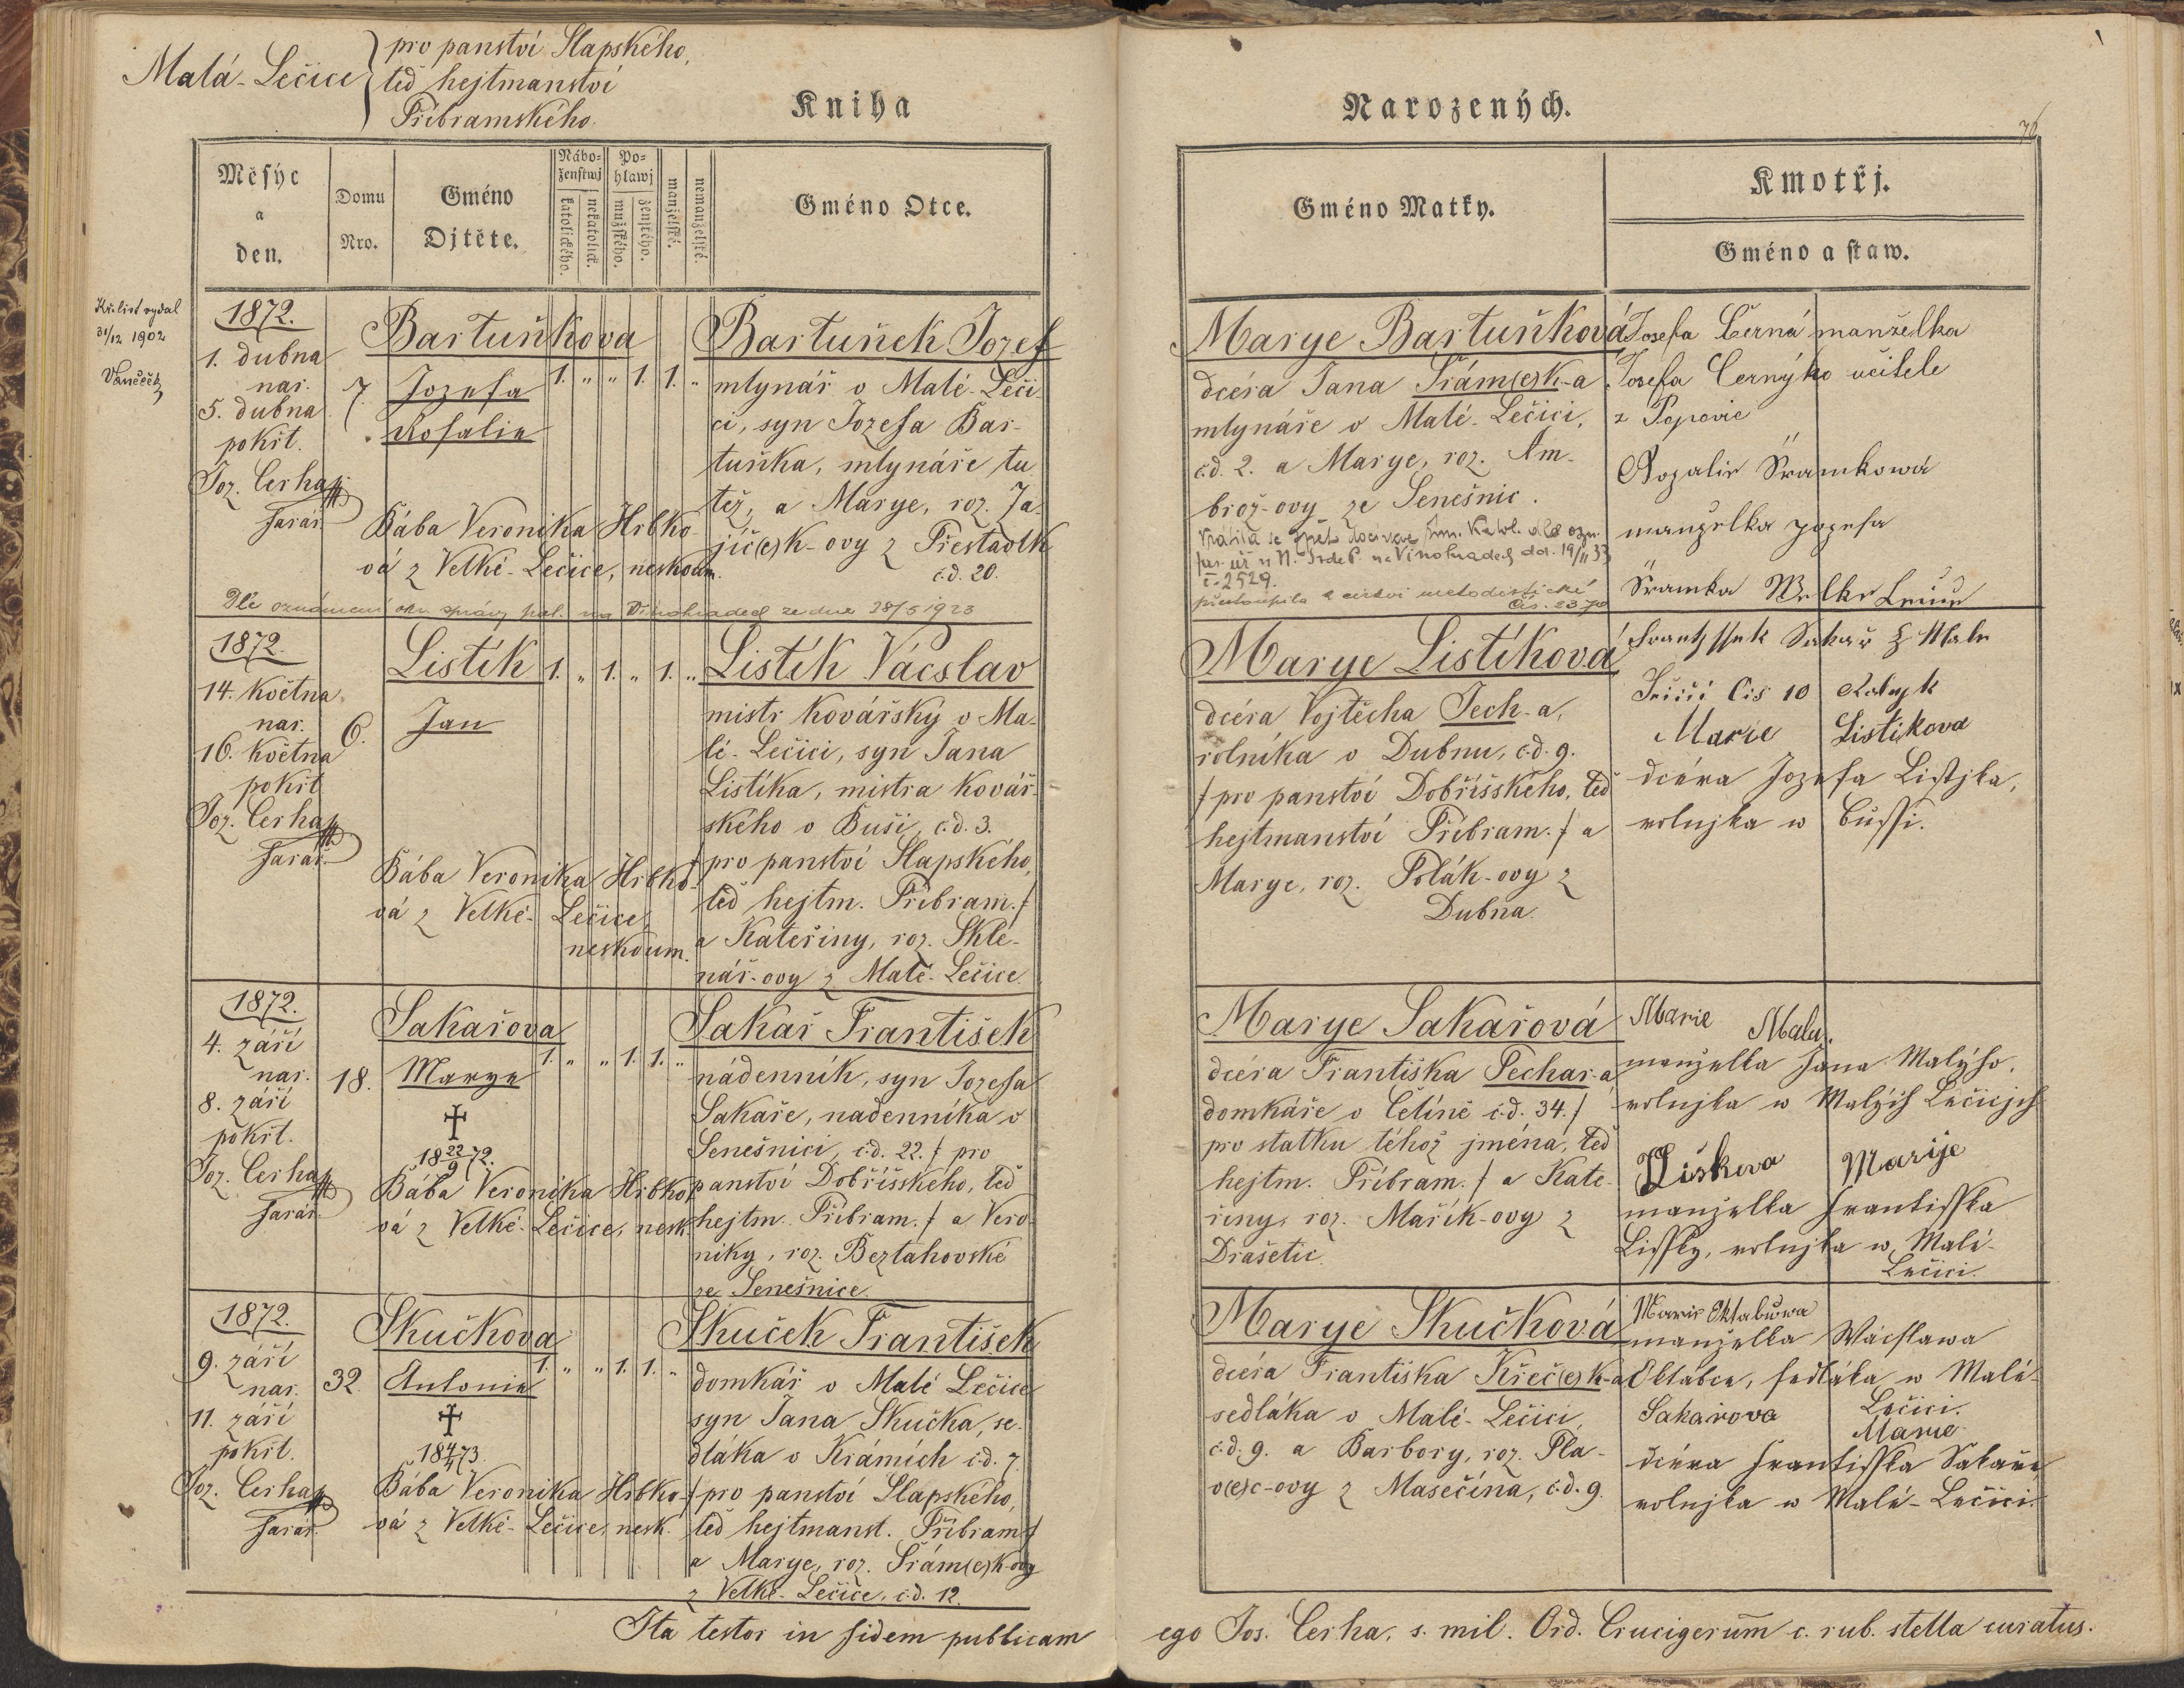 Malá-Lečice
pro panství Slapského,
teď hejtmanství
Příbramského.
Kniha
Měsýc
a
den.
Domu
Nro.
Gméno
Djtěte.
Nábo=
ženstwj
katolického.
nekatolick.
Po=
hlawj
mužského.
ženského.
manželské.
nemanželské.
Gméno Otce.
Kř. list vydal
31/12 1902
Vaněček
1872.
1. dubna
nar.
5. dubna
pokřt.
Joz. Cerha
farář
7.
Bartuňkova
Jozefa
Rosalie
1. „ „ 1. 1. „
Bába Veronika Hrbko-
vá z Velké-Lečice, neskoum.
Bartuněk Jozef
mlynář v Malé-Leči-
ci, syn Jozefa Bar-
tuňka, mlynáře tu
též, a Marye, roz. Ja-
jíč(e)k-ovy z Přestavlk
č.d. 20.
Dle oznámení okr. správy pol. na Vinohradech ze dne 28/5 1923
1872.
14. května
nar.
16. května
pokřt.
Joz. Cerha
farář.
6.
Listík
Jan
1. „ 1. „ 1. „
Bába Veronika Hrbko-
vá z Velké-Lečice,
neskoum.
Listík Vácslav
mistr kovářský v Ma-
lé-Lečici, syn Jana
Listíka, mistra kovář-
ského v Buši, č.d. 3.
/pro panství Slapského,
teď hejtm. Příbram./
a Kateřiny, roz. Skle-
nář-ovy z Malé-Lečice.
1872.
4. září
nar.
8. září
pokřt.
Joz. Cerha
farář.
18.
Sakařova
Marye
1. „ „ 1. 1. „
✝
18 22/9 72.
Bába Veronika Hrbko-
vá z Velké-Lečice, nesk.
Sakař František
nádenník, syn Jozefa
Sakaře, nadenníka v
Senešnici, č.d. 22. / pro
panství Dobříšského, teď
hejtm. Příbram. / a Vero-
niky, roz. Beztahovské
ze Senešnice.
1872.
9. září
nar.
11. září
pokřt.
Joz. Cerha
farář.
32.
Skučkova
Antonie
1. „ „ 1. 1. „
✝
18 4/4 73.
Bába Veronika Hrbko-
vá z Velké-Lečice, nesk.
Skuček František
domkář v Malé Lečice
syn Jana Skučka, se-
dláka v Krámích č.d. 7.
/pro panství Slapského,
teď hejtmanst. Příbram/
a Marye, roz. Šrám(e)k-ovy
z Velké-Lečice, č.d. 12.
Ita testor in fidem publicam
Narozených.
76
Gméno Matky.
Kmotřj.
Gméno a staw.
Marye Bartuňková
dcéra Jana Šrám(e)k-a
mlynáře v Malé-Lečici,
č.d. 2. a Marye, roz. Am-
brož-ovy ze Senešnic.
Vrátila se zpět do církve řím. katol. dle ozn.
far. úř. u N. Srdce P. na Vinohradech dd. 19/II 33
č. 2529.
přestoupila k církvi metodistické
Josefa Černá manželka
Josefa Černýho učitele
z Popovic
Rozalie Šramkowá
manzelka jozefa
Šramka Welke Lečice
Marye Listíková
dcéra Vojtěcha Jech-a,
rolníka v Dubnu, č.d. 9.
/pro panství Dobříšského, teď
hejtmanství Příbram. / a
Marye, roz. Polák-ovy z
Dubna.
Frantyssek Sakař z Male
Lečici Čis 10 Rolnjk
Marie Listikova
dcéra Jozefa Listjka,
rolnjka w Bussi.
Marye Sakařová
dcéra Františka Pechar-a
domkáře v Čelíně č.d. 34. /
pro statku téhož jména, teď
hejtm. Příbram. / a Kate-
řiny, roz. Mařík-ovy z
Drašetic.
Marie Malá.
manželka Jana Malýho,
rolnjka w Malých Lečicjch
Liškova Marije
manželka Frantisska
Lissky, rolnjka w Malé-
Lečici.
Marye Skučková
dcéra Františka Křeč(e)k-a
sedláka v Malé-Lečici,
č.d. 9. a Barbory, roz. Pla-
v(e)c-ovy z Masečína, č.d. 9.
Marie Oktabcowa
manželka Wácslawa
Oktábce, sedláka w Malé-
Lečici.
Sakařova Marie
dcéra Frantisska Sakaře
rolnjka w Malé-Lečici.
ego Jos. Cerha, s. mil. Ord. Crucigerum̄ c. rub. stella curatus.